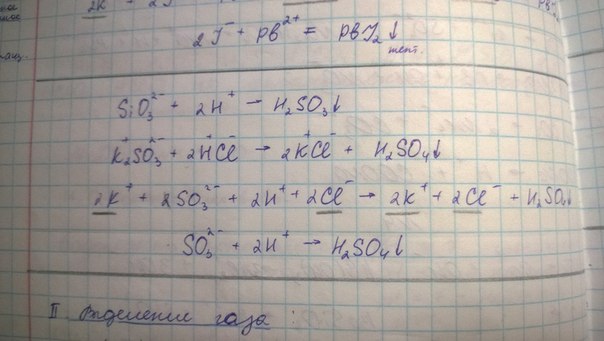 2I⁻ + Pb²⁺ = PbI₂↓
SiO₃²⁻ + 2H⁺ → H₂SO₃↓
K₂⁺SO₃²⁻ + 2H⁺Cl⁻ → 2K⁺Cl⁻ + H₂SO₄↓
2K⁺ + 2SO₃²⁻ + 2H⁺ + 2Cl⁻ → 2K⁺ + 2Cl⁻ + H₂SO₄↓
SO₃²⁻ + 2H⁺ → H₂SO₄↓
II Выделение газа :